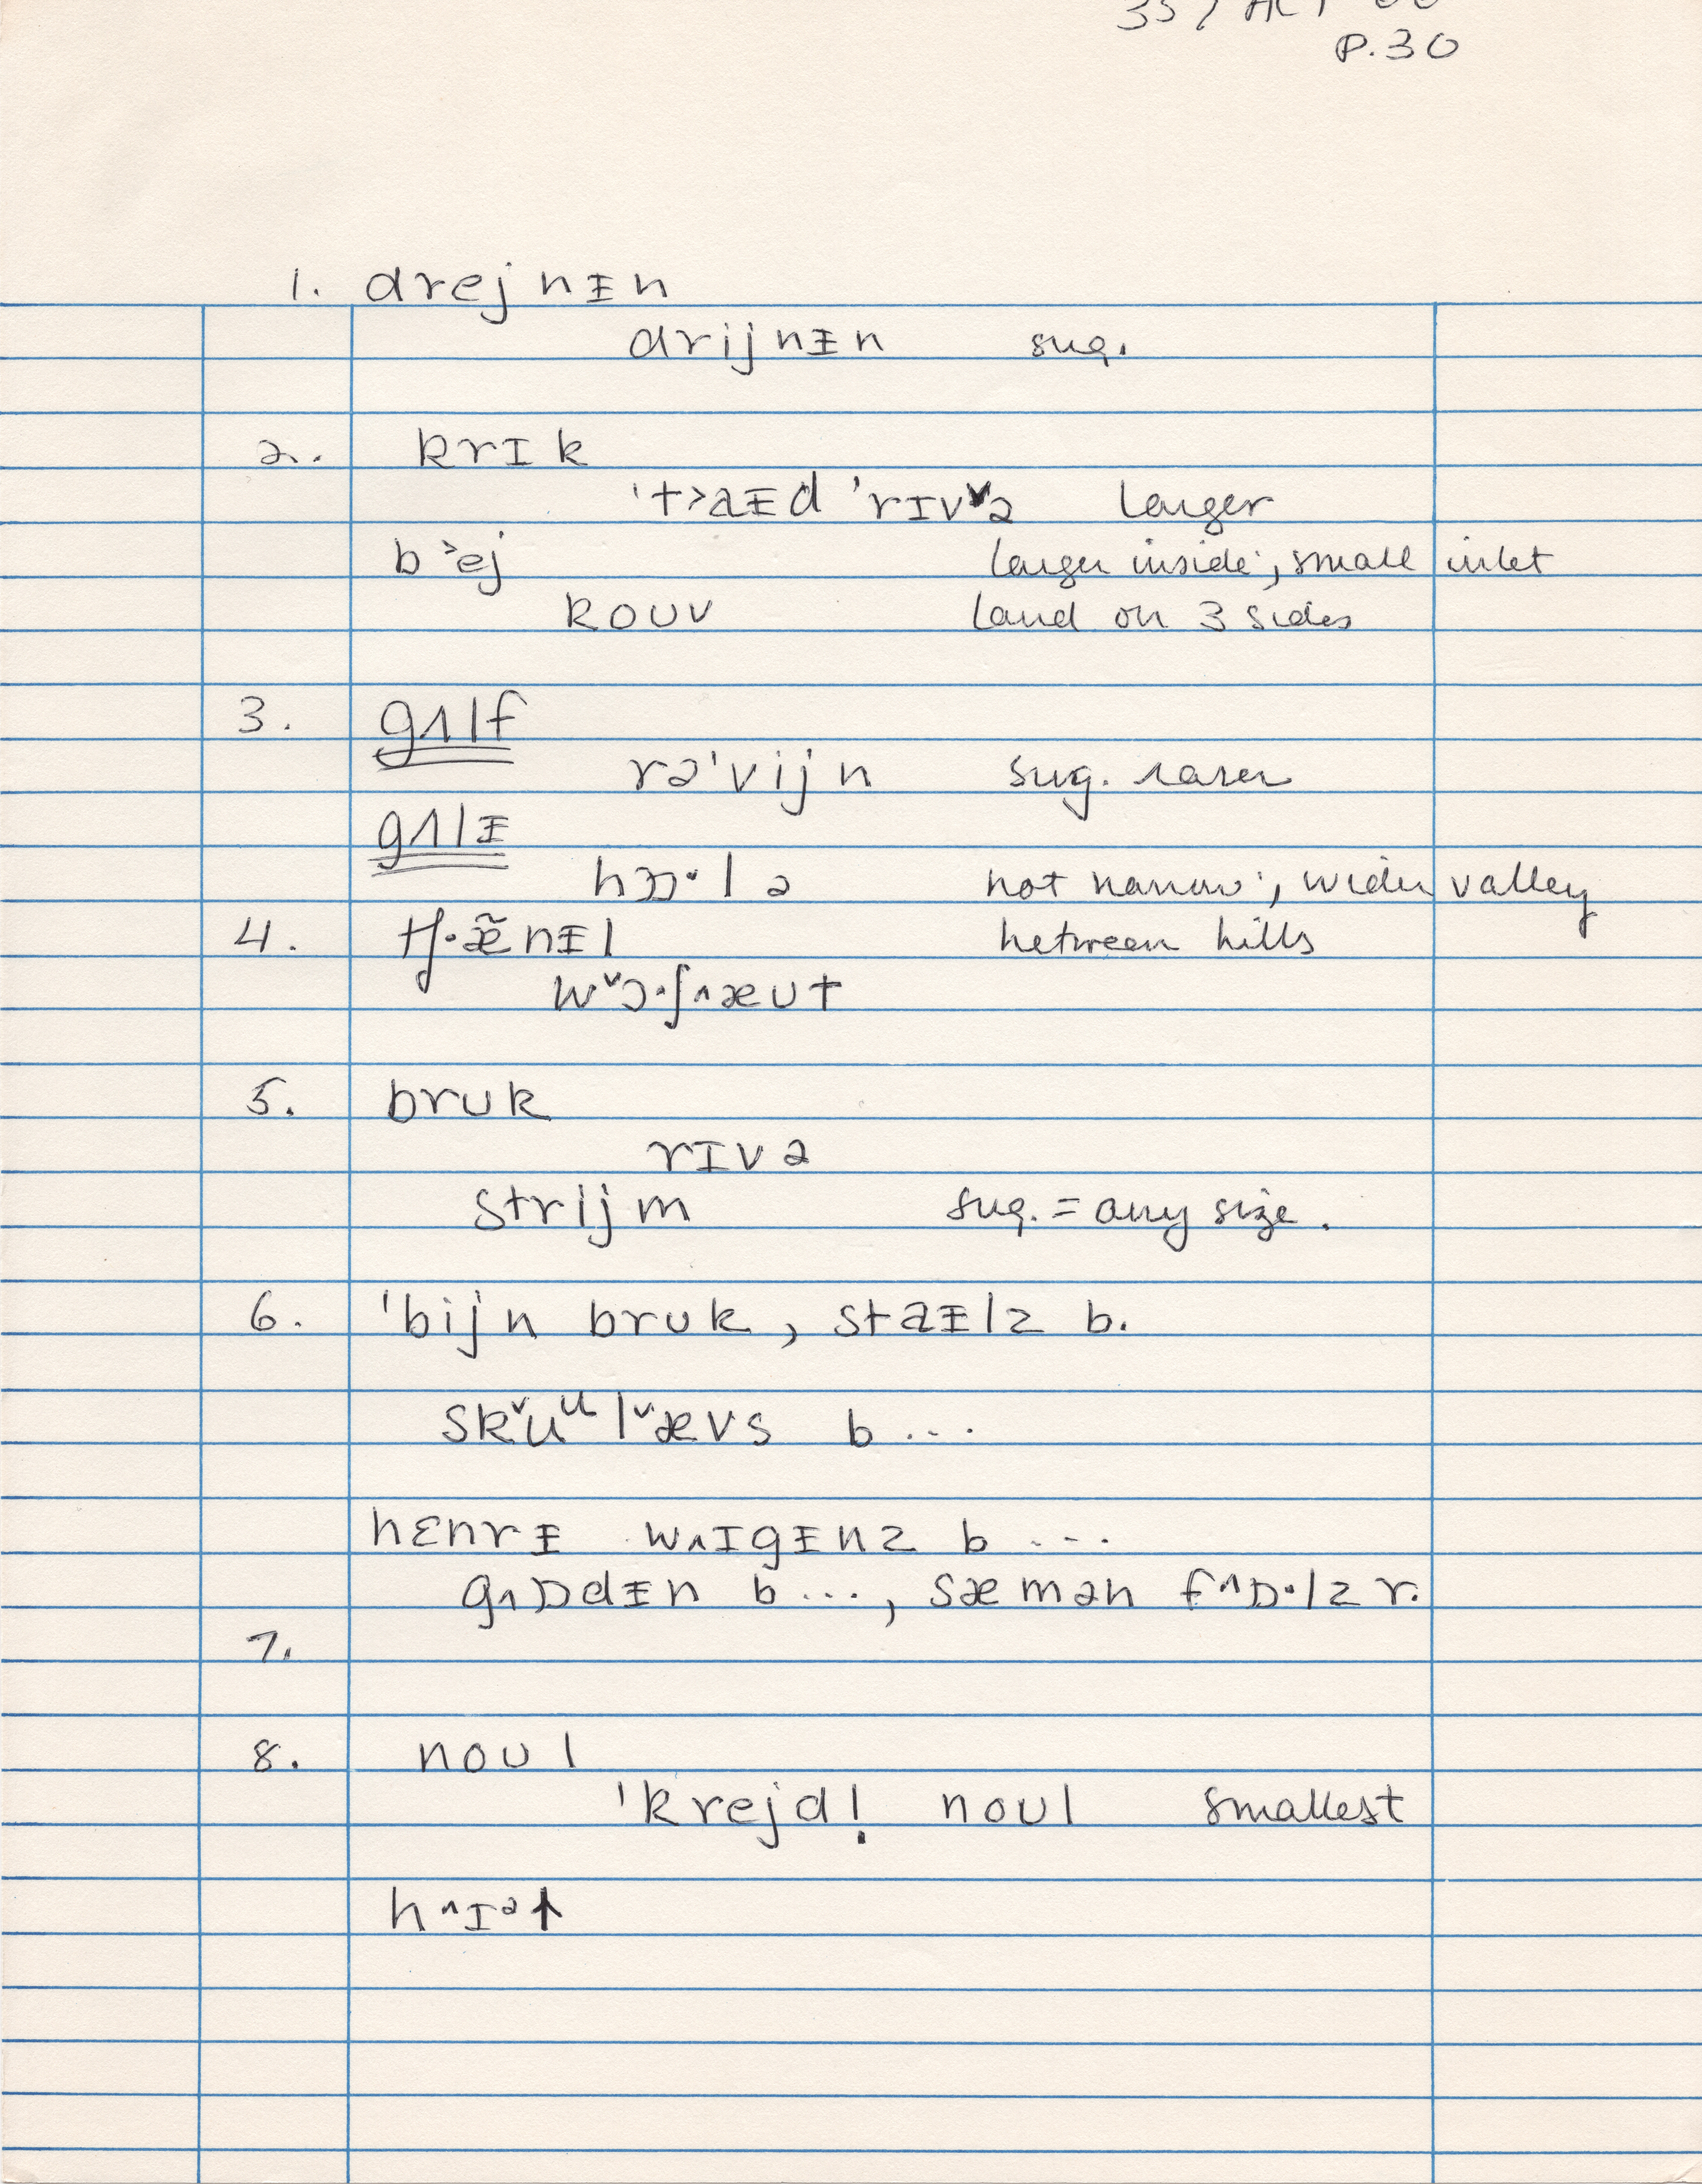 P.30
1. drejnᵻn
drijnᵻn sug.
2. krɪk
't>aᵻd 'rɪvˇə larger
b>ej larger inside; small inlet
koʊv land on 3 sides
3. gʌlf
rə'vijn sug. rarer
gʌlᵻ
hɒɒ·lə not narrow; wider valley
4. tʃ·æ̃nᵻl between hills
wˇɔ·ʃ^æʊt
5. brʊk
rɪvə
strijm sug. = any size.
6. 'bijn brʊk, staᵻlz b.
skˇuᵘlˇævs b...
hɛnrᵻ w^ɪgᵻnz b ...
g^ɒdᵻn b..., sæmən f^ɒ·lz r.
7.
8. noʊl
'krejd! noʊl smallest
h^ɪᵊt